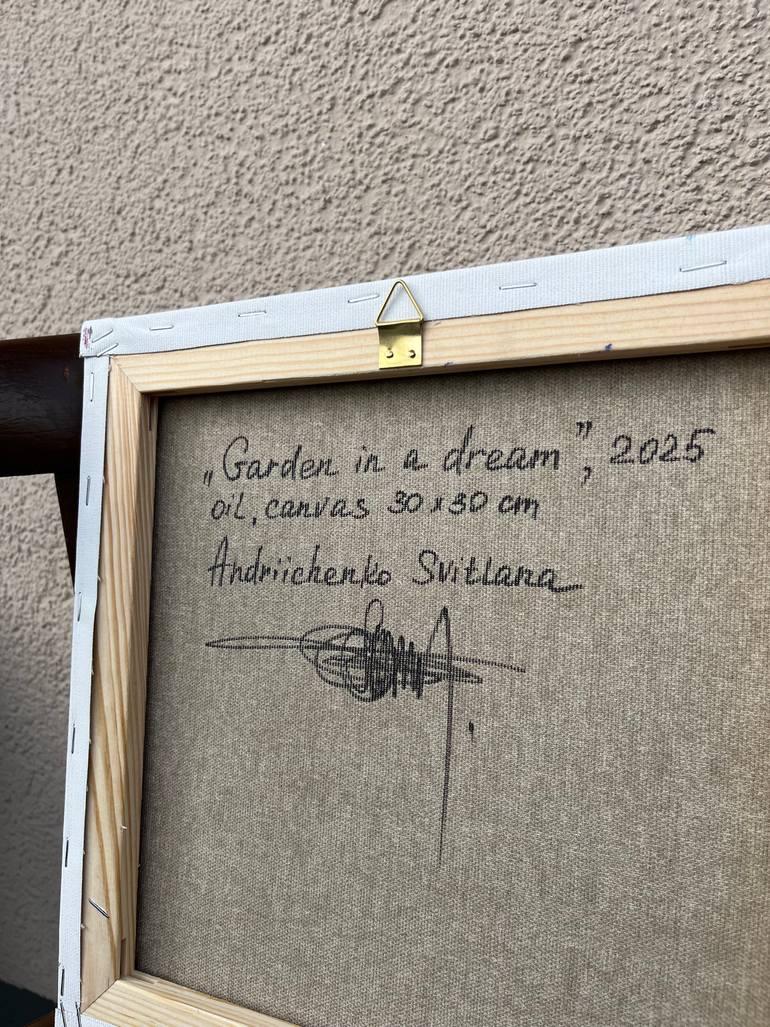 „Garden in a dream”, 2025
oil, canvas 30 x 30 cm
Andriichenko Svitlana